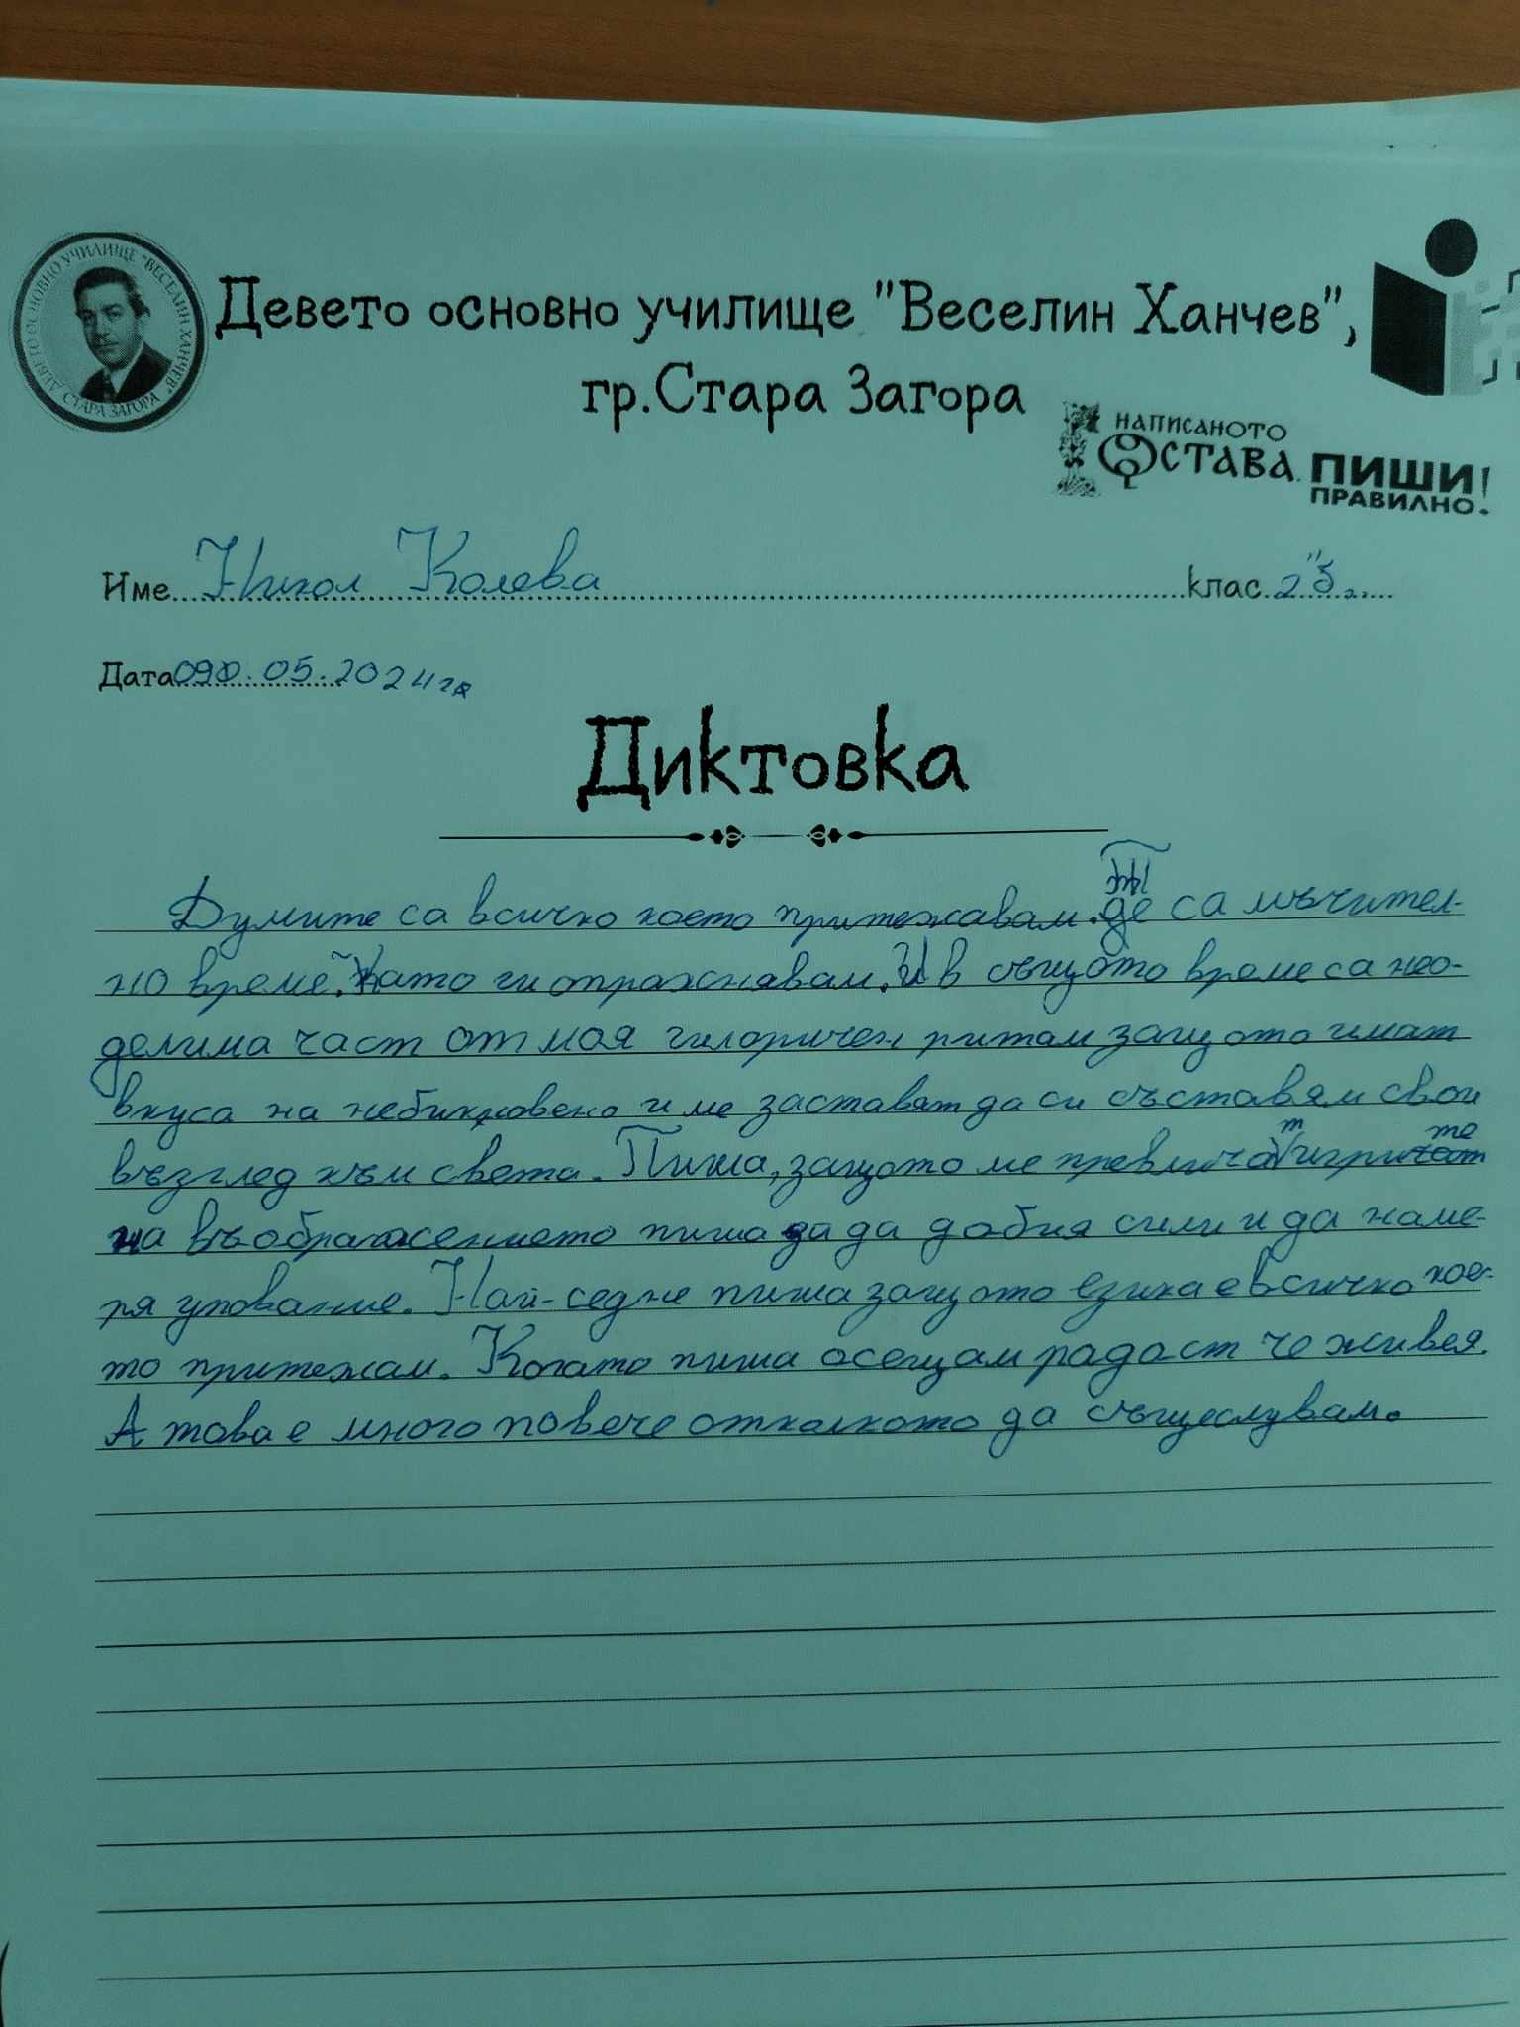 ДЕВЕТО ОСНОВНО УЧИЛИЩЕ "ВЕСЕЛИН ХАНЧЕВ"
СТАРА ЗАГОРА
Девето основно училище "Веселин Ханчев",
гр.Стара Загора
НАПИСАНОТО
ОСТАВА.
ПИШИ!
ПРАВИЛНО.
Име Никол Колева клас 2"б"
Дата 09.05.2024г.
Диктовка
Думите са всичко което притежавам. Те са мъчител-
но време. Като ги отразснявам. И в същото време са нео-
делима част от моя гилоричен ритам защото имат
вкуса на небикновено и ме заставят да си съставям свои
възглед към света. Пиша, защото ме превличат игрите
на въображението пиша за да добия сили и да наме-
ря упование. Най-седне пиша защото езика е всичко кое-
то притежам. Когато пиша осещам радаст че живея.
А това е много повече отколкото да същеслувам.